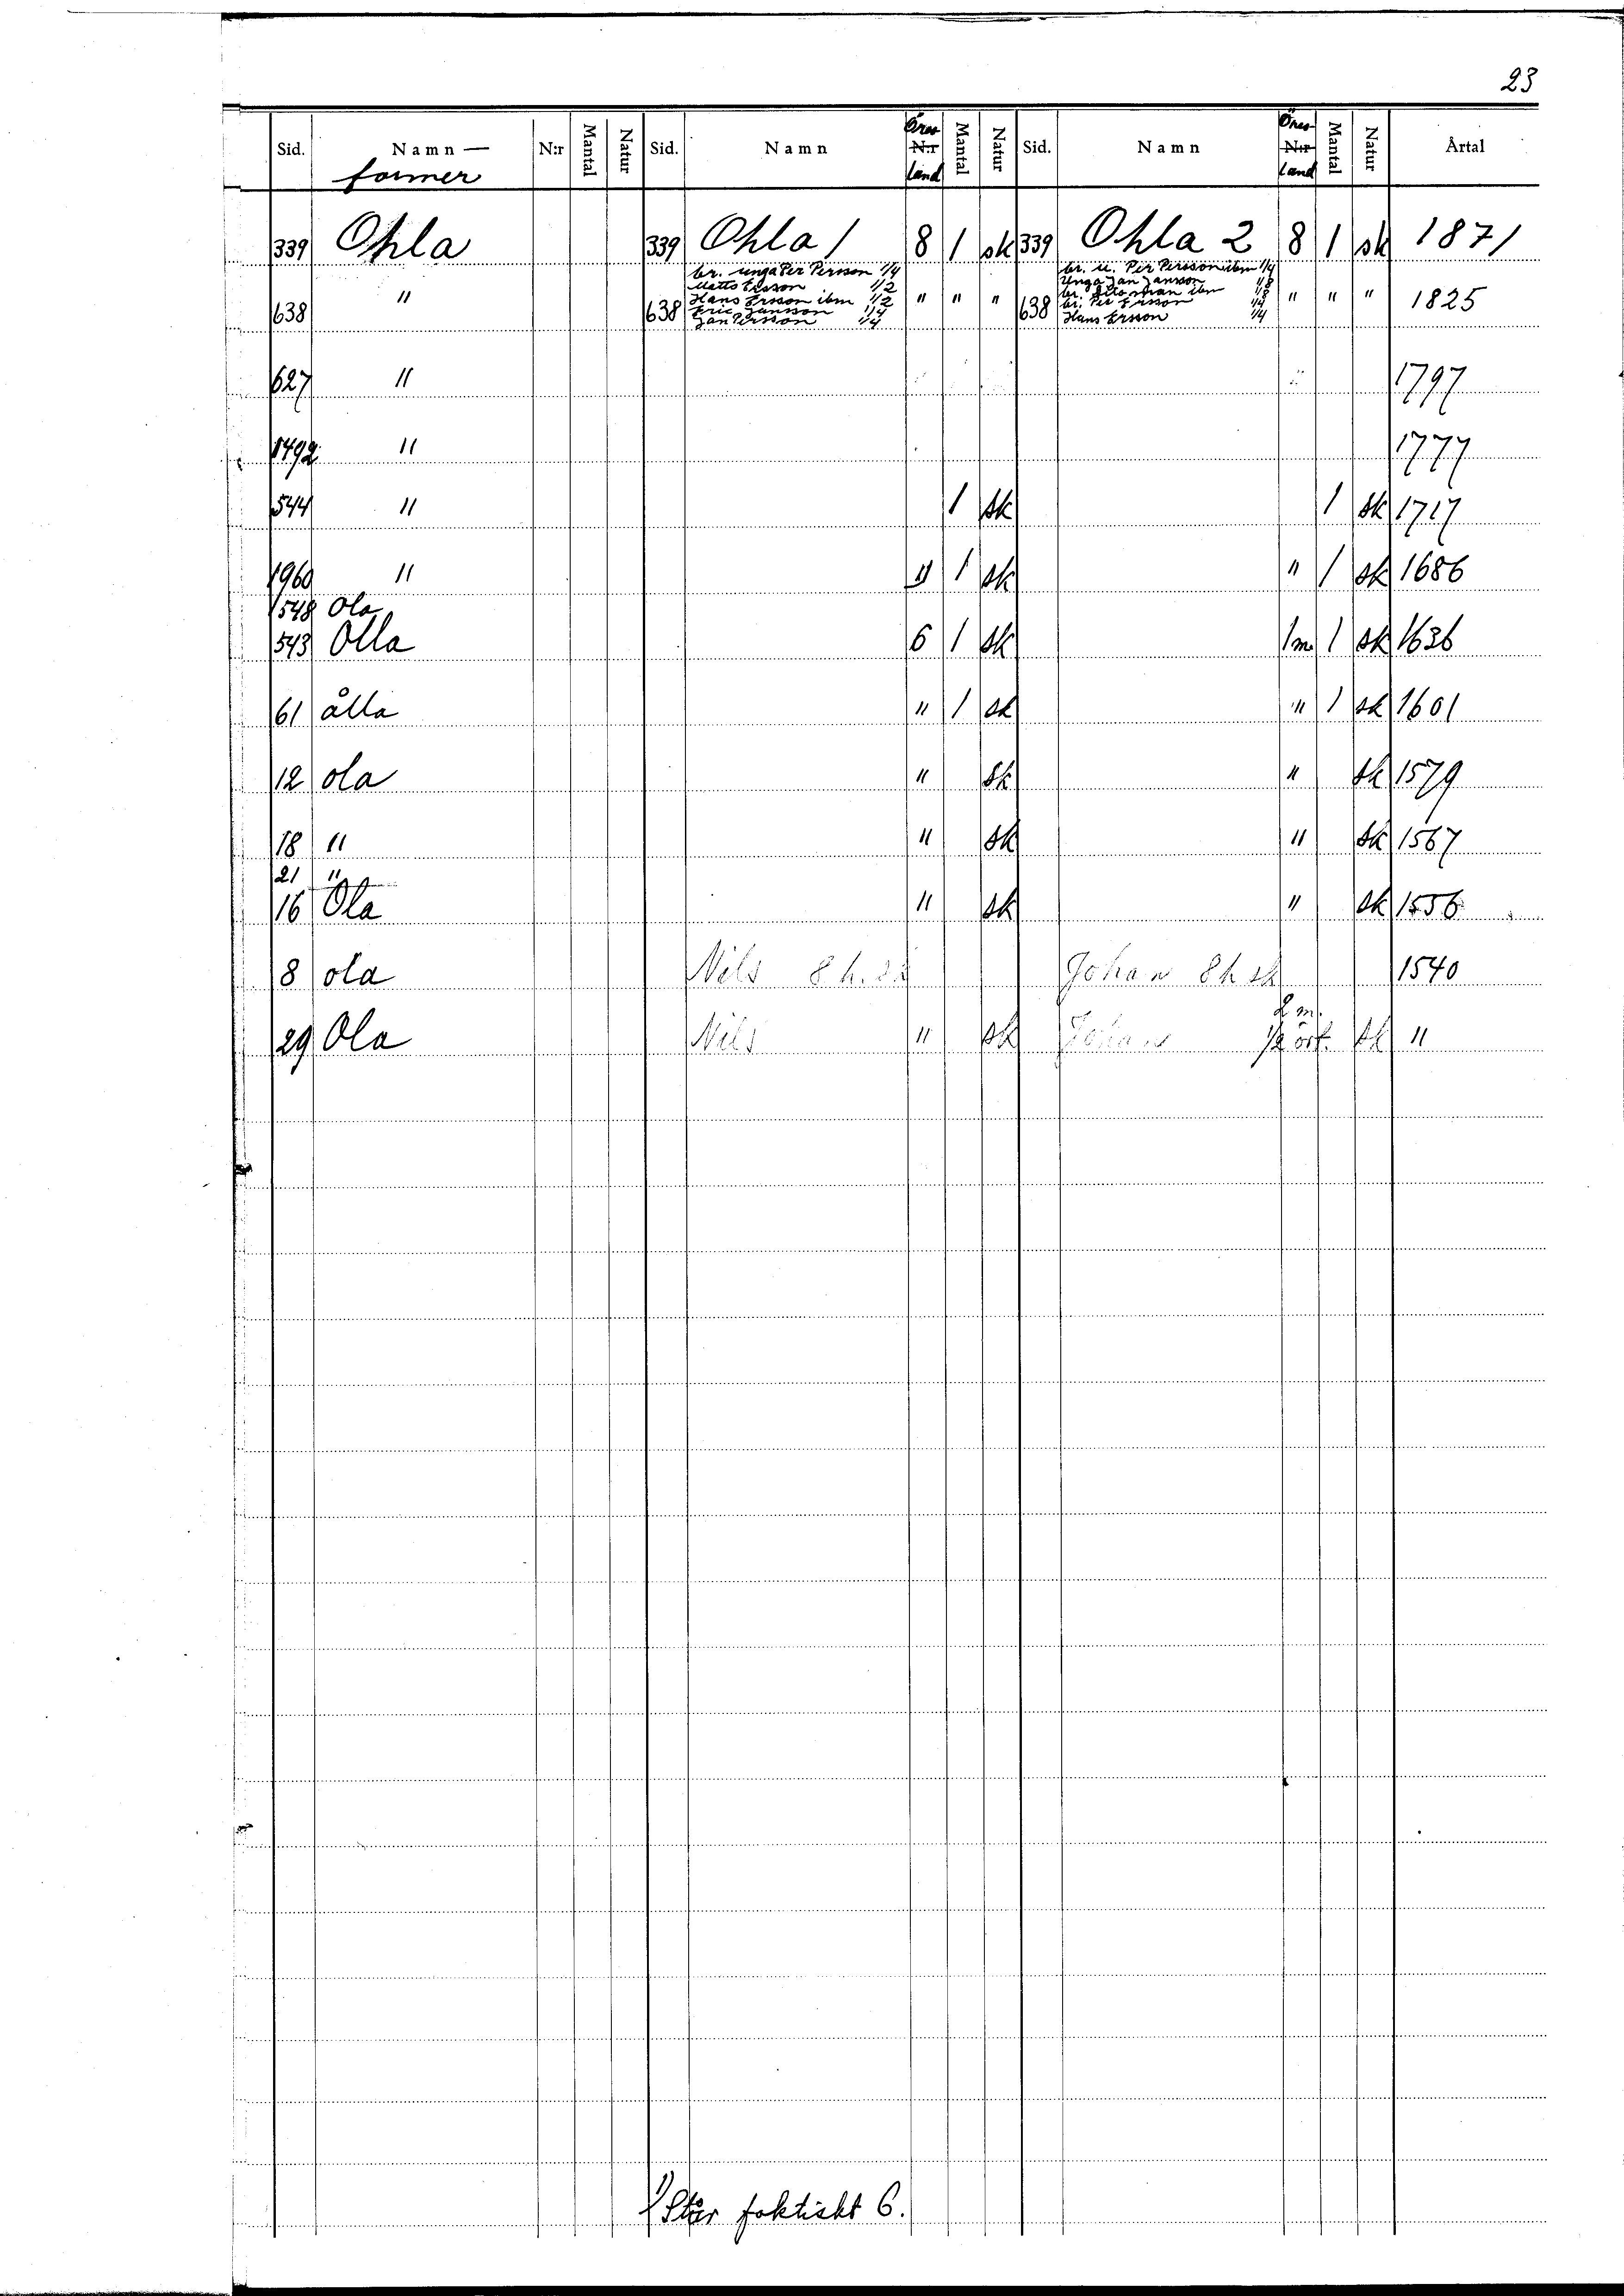 23
Sid. Namn— former N:r Mantal Natur Sid. Namn Öres N:r land Mantal Natur Sid. Namn Öres N:r land Mantal Natur Årtal
339 Ohla 339 Ohla 1 8 1 sk 339 Ohla 2 8 1 sk 1871
br. unga Per Persson 1/4 br. u. Per Persson ibm 1/4
Matts Ersson 1/2 Unga Jan Jansson 1/8
638 " 638 Hans Ersson ibm 1/2 " " " 638 br. ibm 1/8 " " " 1825
Eric Jansson 1/4 br. Per Ersson 1/4
Jan Persson 1/4 Hans Ersson 1/4
627 " 1797
1492 " 1777
544 " 1 sk 1 sk 1717
1960 " " 1 sk " 1 sk 1686
1548 Ola
543 Olla 6 1 sk 1m. 1 sk 1636
61 ålla " 1 sk " 1 sk 1601
12 ola " sk " sk 1579
18 " " sk " sk 1567
21 "
16 Ola " sk " sk 1556
8 ola Nils 8 h. sk Johan 8 h sk 1540
29 Ola Nils " sk Johan 2 m. 1/2 ört. sk "
1) Står faktiskt 6.